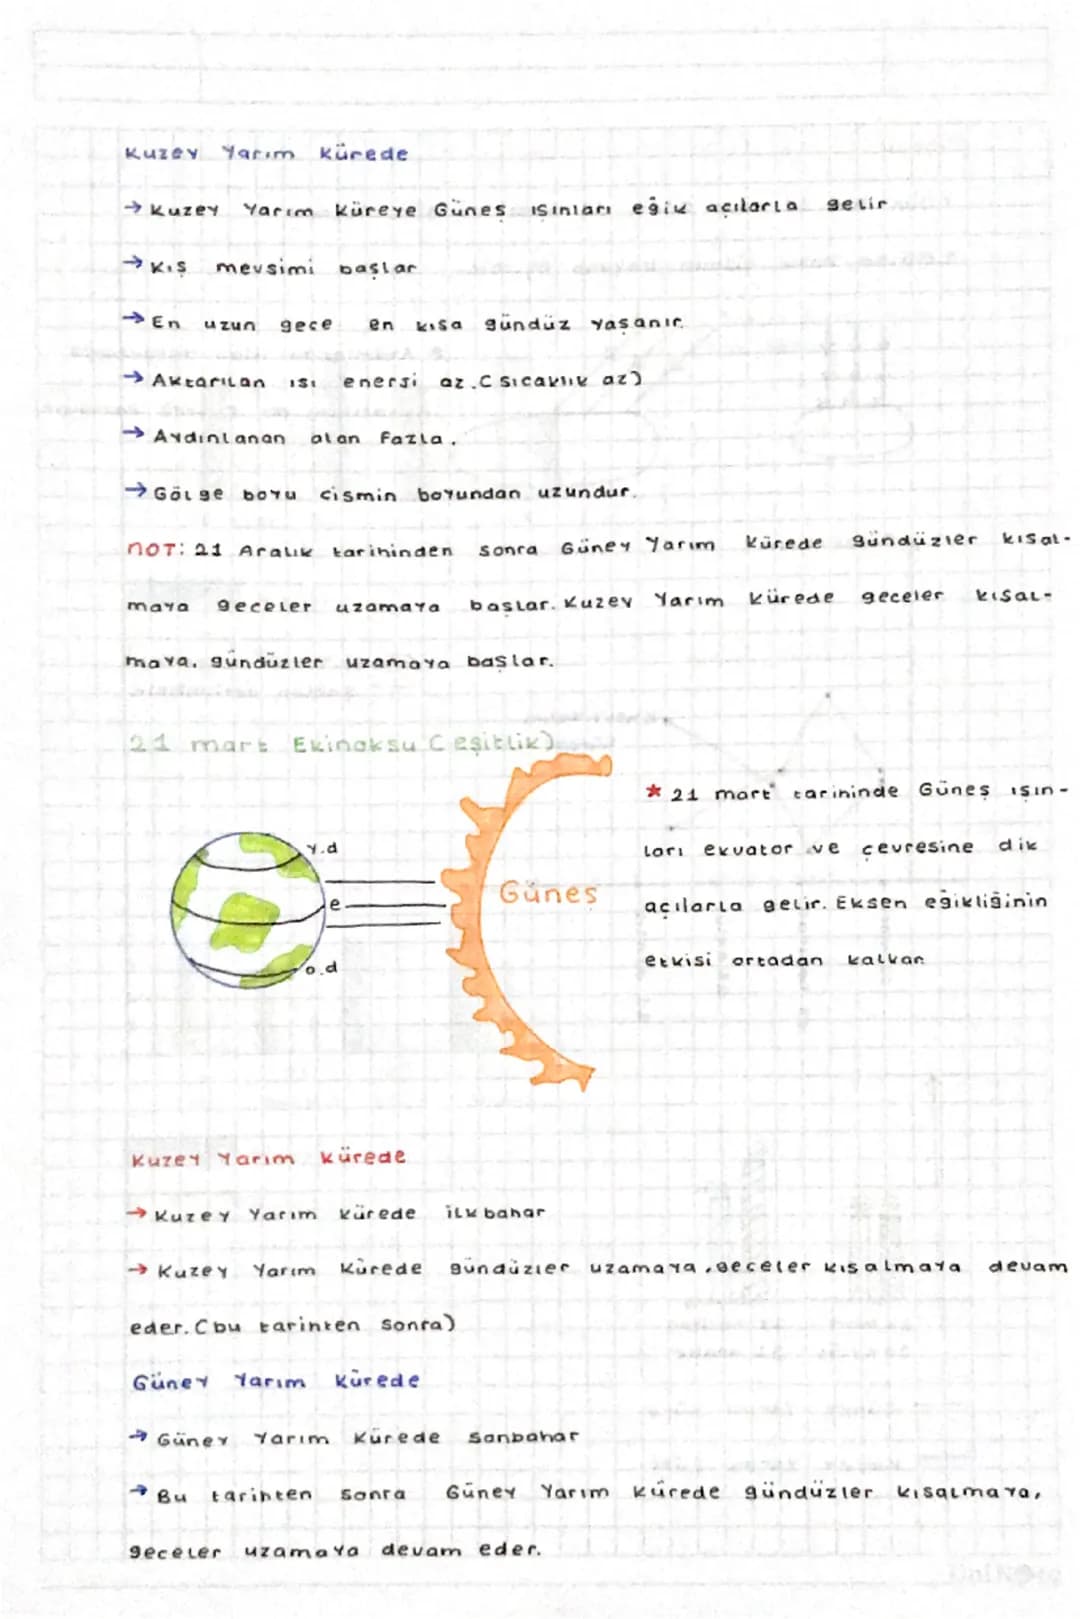 Kuzey Yarım Kürede
→ Kuzey Yarım Küreye Güneş ışınları eğik açılarla gelir
→ Kış mevsimi başlar
→ En uzun gece en kısa gündüz yaşanır.
→ Aktarılan ısı enerji az. (sıcaklık az)
→ Aydınlanan alan Fazla.
→ Gölge boyu cismin boyundan uzundur.
NOT: 21 Aralık tarihinden sonra Güney Yarım Kürede gündüzler kısal-
maya geceler uzamaya başlar. Kuzey Yarım Kürede geceler kısal-
maya, gündüzler uzamaya başlar.
21 mart Ekinoksu (eşitlik)
* 21 mart tarihinde Güneş ışın-
ları ekvator ve çevresine dik
açılarla gelir. Eksen eğikliğinin
etkisi ortadan kalkar
y.d
e
o.d
Güneş
Kuzey Yarım Kürede
→ Kuzey Yarım Kürede ilkbahar
→ Kuzey Yarım Kürede gündüzler uzamaya, geceler kısalmaya devam
eder. (bu tarihten sonra)
Güney Yarım Kürede
→ Güney Yarım Kürede sonbahar
→ Bu tarihten sonra Güney Yarım Kürede gündüzler kısalmaya,
geceler uzamaya devam eder.